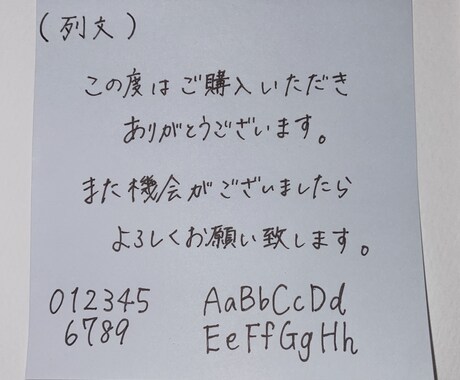 (列文)
この度はご購入いただき
ありがとうございます。
また機会がございましたら
よろしくお願い致します。
012345
6789
AaBbCcDd
EeFfGgHh